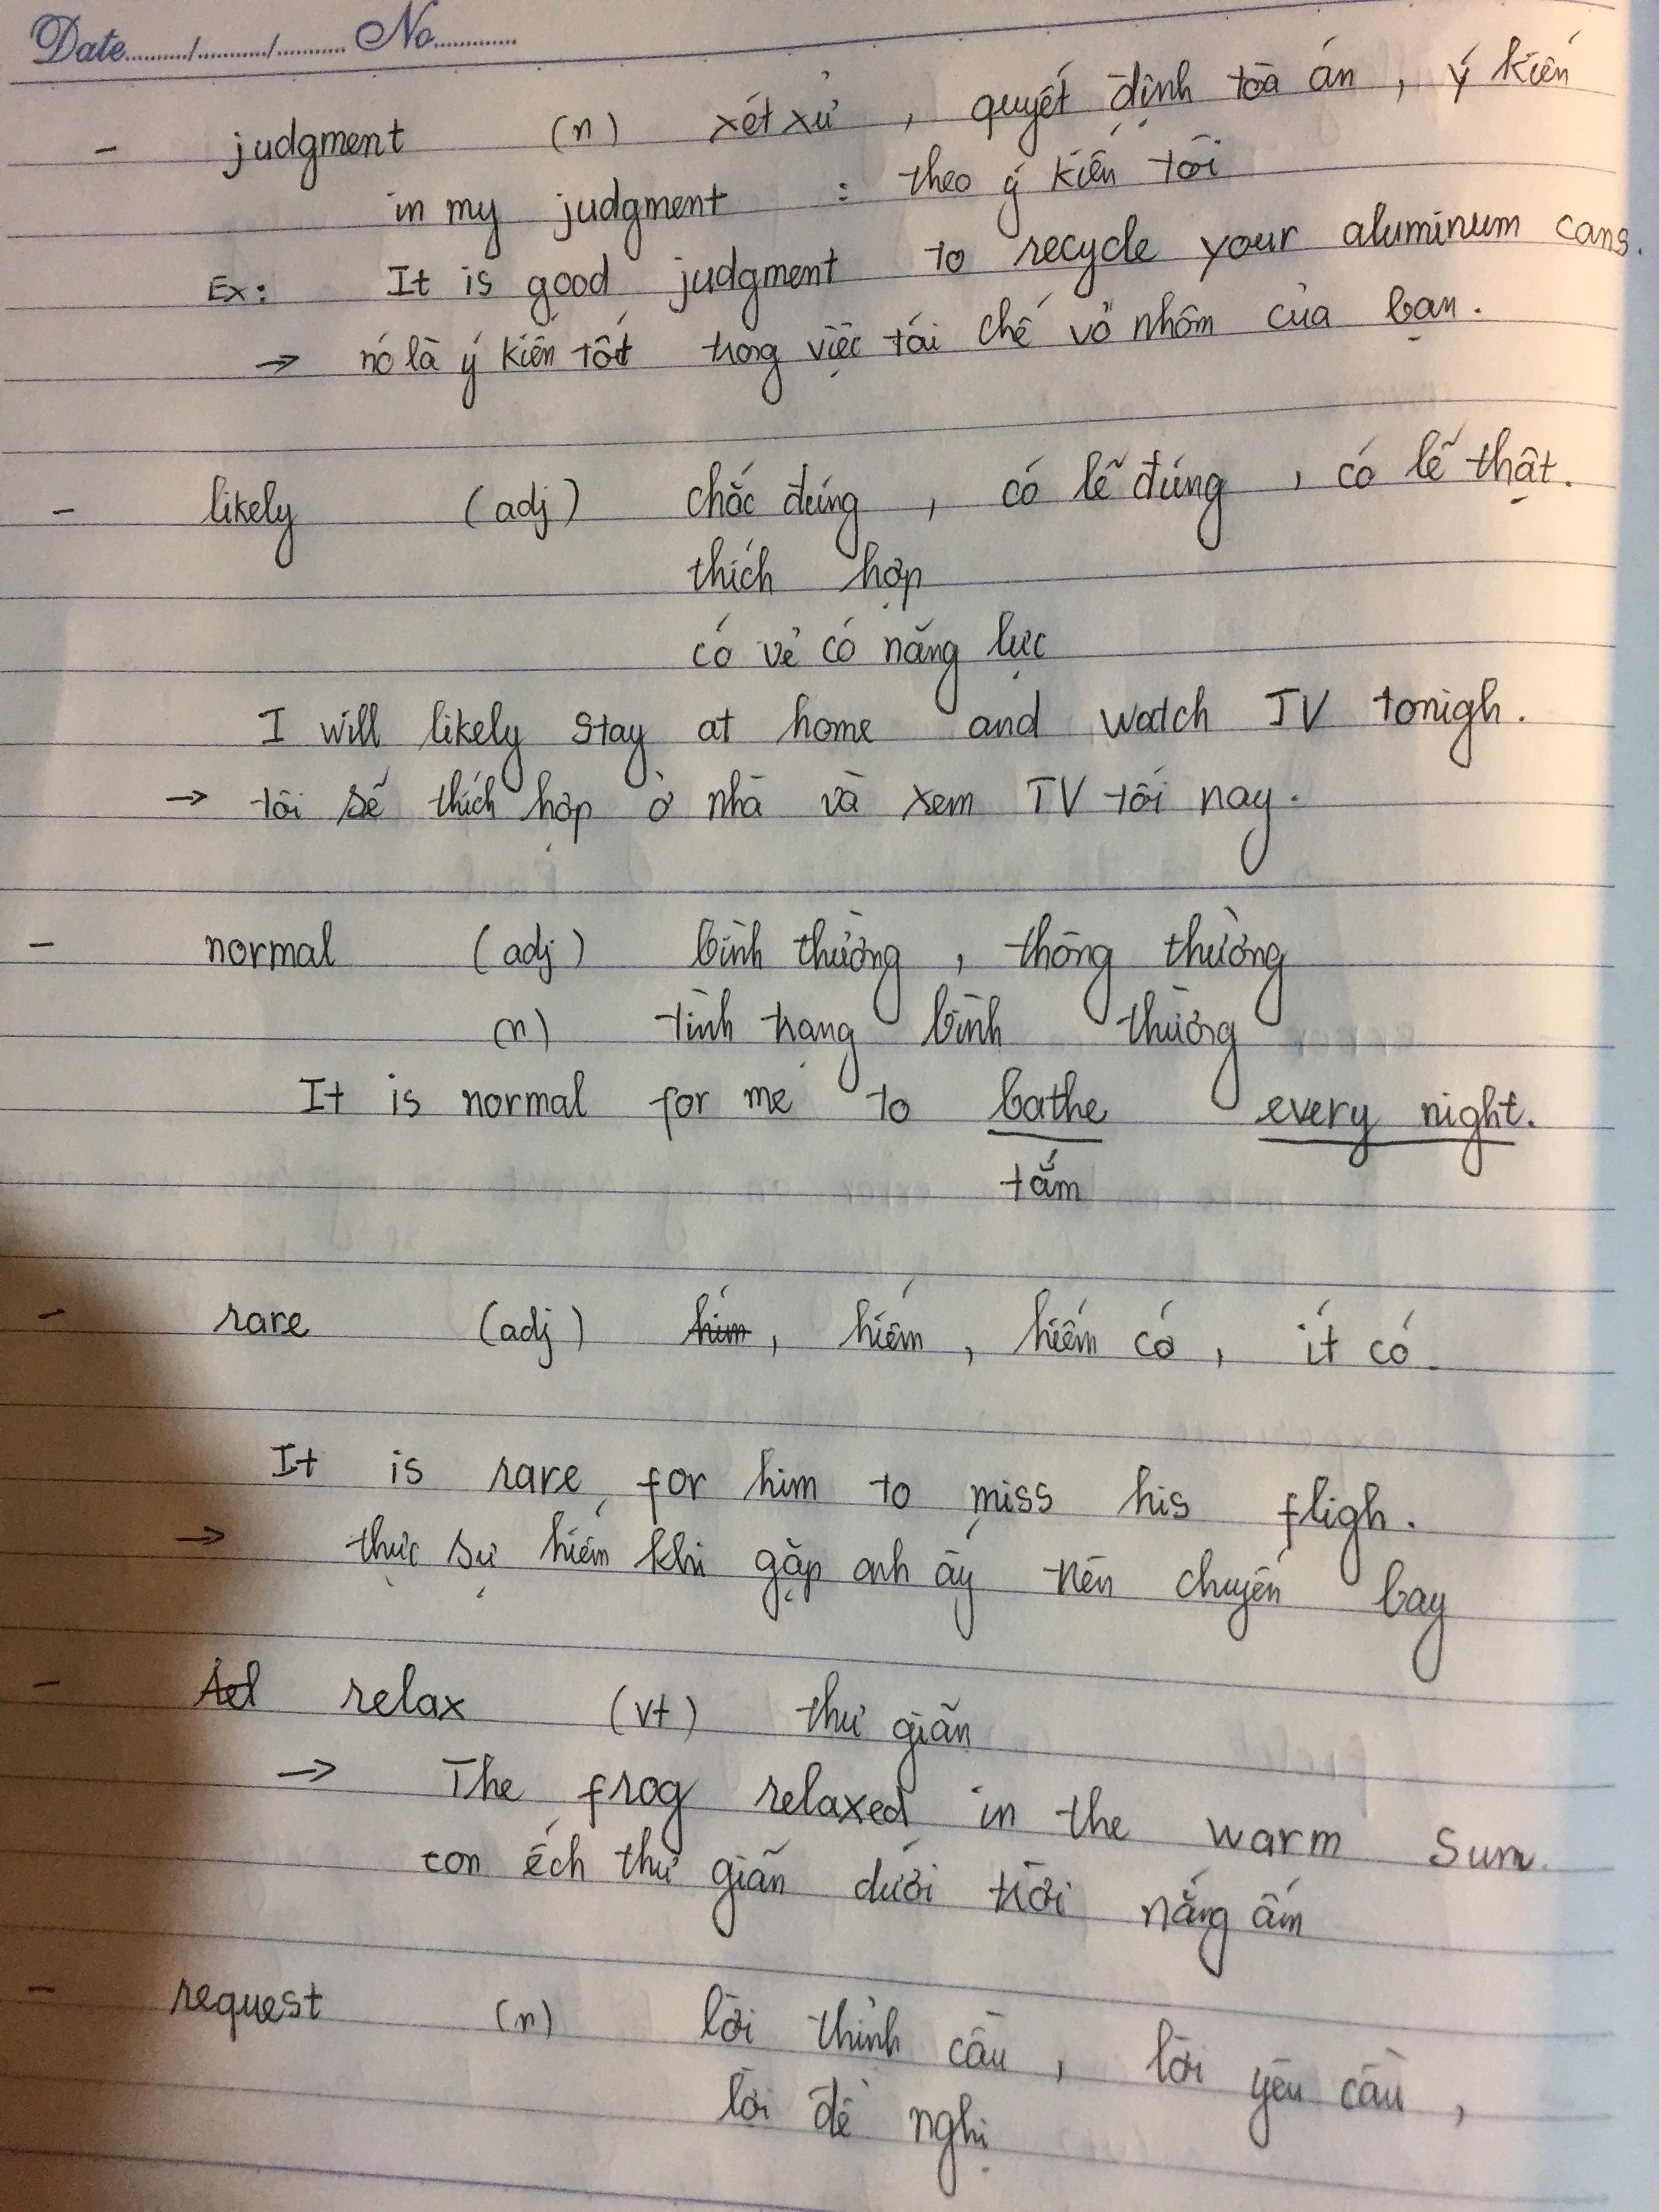 Date........../........../.......... No.............
- judgment (n) xét xử , quyết định tòa án , ý kiến
in my judgment : theo ý kiến tôi
Ex: It is good judgment to recycle your aluminum cans.
→ nó là ý kiến tốt trong việc tái chế vỏ nhôm của bạn.
- likely (adj) chắc đúng , có lẽ đúng , có lẽ thật.
thích hợp
có vẻ có năng lực
I will likely stay at home and watch TV tonigh.
→ tôi sẽ thích hợp ở nhà và xem TV tối nay.
- normal (adj) bình thường , thông thường
(n) tình trạng bình thường
It is normal for me to bathe every night.
tắm
- rare (adj) him, hiếm , hiếm có , ít có.
It is rare for him to miss his fligh.
→ thực sự hiếm khi gặp anh ấy trên chuyến bay
- Ad relax (vt) thư giãn
→ The frog relaxed in the warm sun.
con ếch thư giãn dưới trời nắng ấm
- request (n) lời thỉnh cầu , lời yêu cầu ,
lời đề nghị